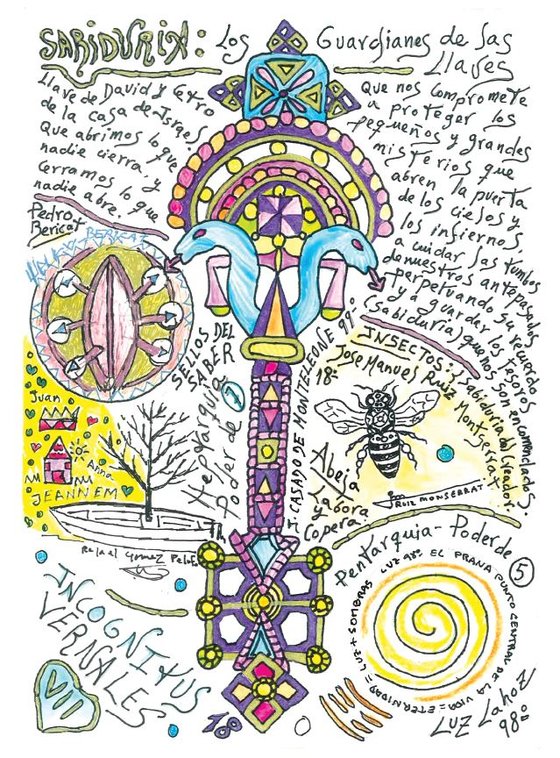 SABIDURIA: Los Guardianes de las
Llaves
Llave de David y Cetro
de la casa de Israel
Que abrimos lo que
nadie cierra, y
Cerramos lo que
nadie abre.
Pedro
Bericat
BERICAT
Que nos compromete
a proteger los
pequeños y grandes
misterios que
abren la puerta
de los cielos y
los infiernos
a cuidar las tumbas
de nuestros antepasados
perpetuando su recuerdo
y a guardar los tesoros
(sabiduría) que nos son encomendados.
SELLOS DEL
SABER
Heptarquia
Poder de 7
CASADO DE MONTELEONE 99º
INSECTOS: Sabiduria del Creador.
Jose Manuel Ruiz Montserrat
18º
Abeja
Labora
y
Copera
RUIZ MONSERRAT
Juan
Anna
JEANNEM
Rafael Gomez
INCOGNITUS
VERNALES
VII
18
Pentarquia-Poder de
5
LUZ EL PRANA PUNTO CENTRAL DE LA VIDA = ETERNIDAD = LUZ + SOMBRAS
Luz Lahoz
98º